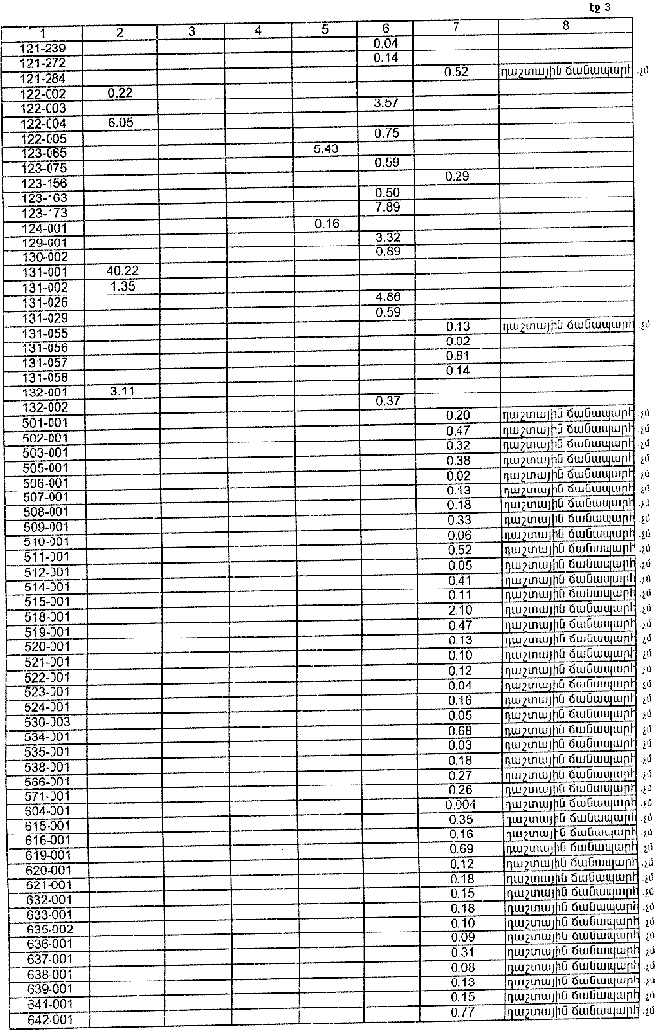 էջ 3
1 2 3 4 5 6 7 8
121-239 0.04
121-272 0.14
121-284 0.52 դաշտային ճանապարհ .չմ
122-002 0.22
122-003 3.57
122-004 6.05
122-005 0.75
123-065 5.43
123-075 0.59
123-156 0.29
123-163 0.50
123-173 7.89
124-001 0.16
129-001 3.32
130-002 0.69
131-001 40.22
131-002 1.35
131-026 4.86
131-029 0.59
131-055 0.13 դաշտային ճանապարհ .չմ
131-056 0.02
131-057 0.81
131-058 0.14
132-001 3.11
132-002 0.37
501-001 0.20 դաշտային ճանապարհ .չմ
502-001 0.47 դաշտային ճանապարհ .չմ
503-001 0.32 դաշտային ճանապարհ .չմ
505-001 0.38 դաշտային ճանապարհ .չմ
506-001 0.02 դաշտային ճանապարհ .չմ
507-001 0.13 դաշտային ճանապարհ .չմ
508-001 0.18 դաշտային ճանապարհ .չմ
509-001 0.33 դաշտային ճանապարհ .չմ
510-001 0.06 դաշտային ճանապարհ .չմ
511-001 0.52 դաշտային ճանապարհ .չմ
512-001 0.05 դաշտային ճանապարհ .չմ
514-001 0.41 դաշտային ճանապարհ .չմ
515-001 0.11 դաշտային ճանապարհ .չմ
518-001 2.10 դաշտային ճանապարհ .չմ
519-001 0.47 դաշտային ճանապարհ .չմ
520-001 0.13 դաշտային ճանապարհ .չմ
521-001 0.10 դաշտային ճանապարհ .չմ
522-001 0.12 դաշտային ճանապարհ .չմ
523-001 0.04 դաշտային ճանապարհ .չմ
524-001 0.16 դաշտային ճանապարհ .չմ
530-003 0.05 դաշտային ճանապարհ .չմ
534-001 0.68 դաշտային ճանապարհ .չմ
535-001 0.03 դաշտային ճանապարհ .չմ
538-001 0.18 դաշտային ճանապարհ .չմ
566-001 0.27 դաշտային ճանապարհ .չմ
571-001 0.26 դաշտային ճանապարհ .չմ
604-001 0.004 դաշտային ճանապարհ .չմ
615-001 0.35 դաշտային ճանապարհ .չմ
616-001 0.16 դաշտային ճանապարհ .չմ
619-001 0.69 դաշտային ճանապարհ .չմ
620-001 0.12 դաշտային ճանապարհ .չմ
621-001 0.18 դաշտային ճանապարհ .չմ
632-001 0.15 դաշտային ճանապարհ .չմ
633-001 0.18 դաշտային ճանապարհ .չմ
635-002 0.10 դաշտային ճանապարհ .չմ
636-001 0.09 դաշտային ճանապարհ .չմ
637-001 0.31 դաշտային ճանապարհ .չմ
638-001 0.08 դաշտային ճանապարհ .չմ
639-001 0.13 դաշտային ճանապարհ .չմ
641-001 0.15 դաշտային ճանապարհ .չմ
642-001 0.77 դաշտային ճանապարհ .չմ